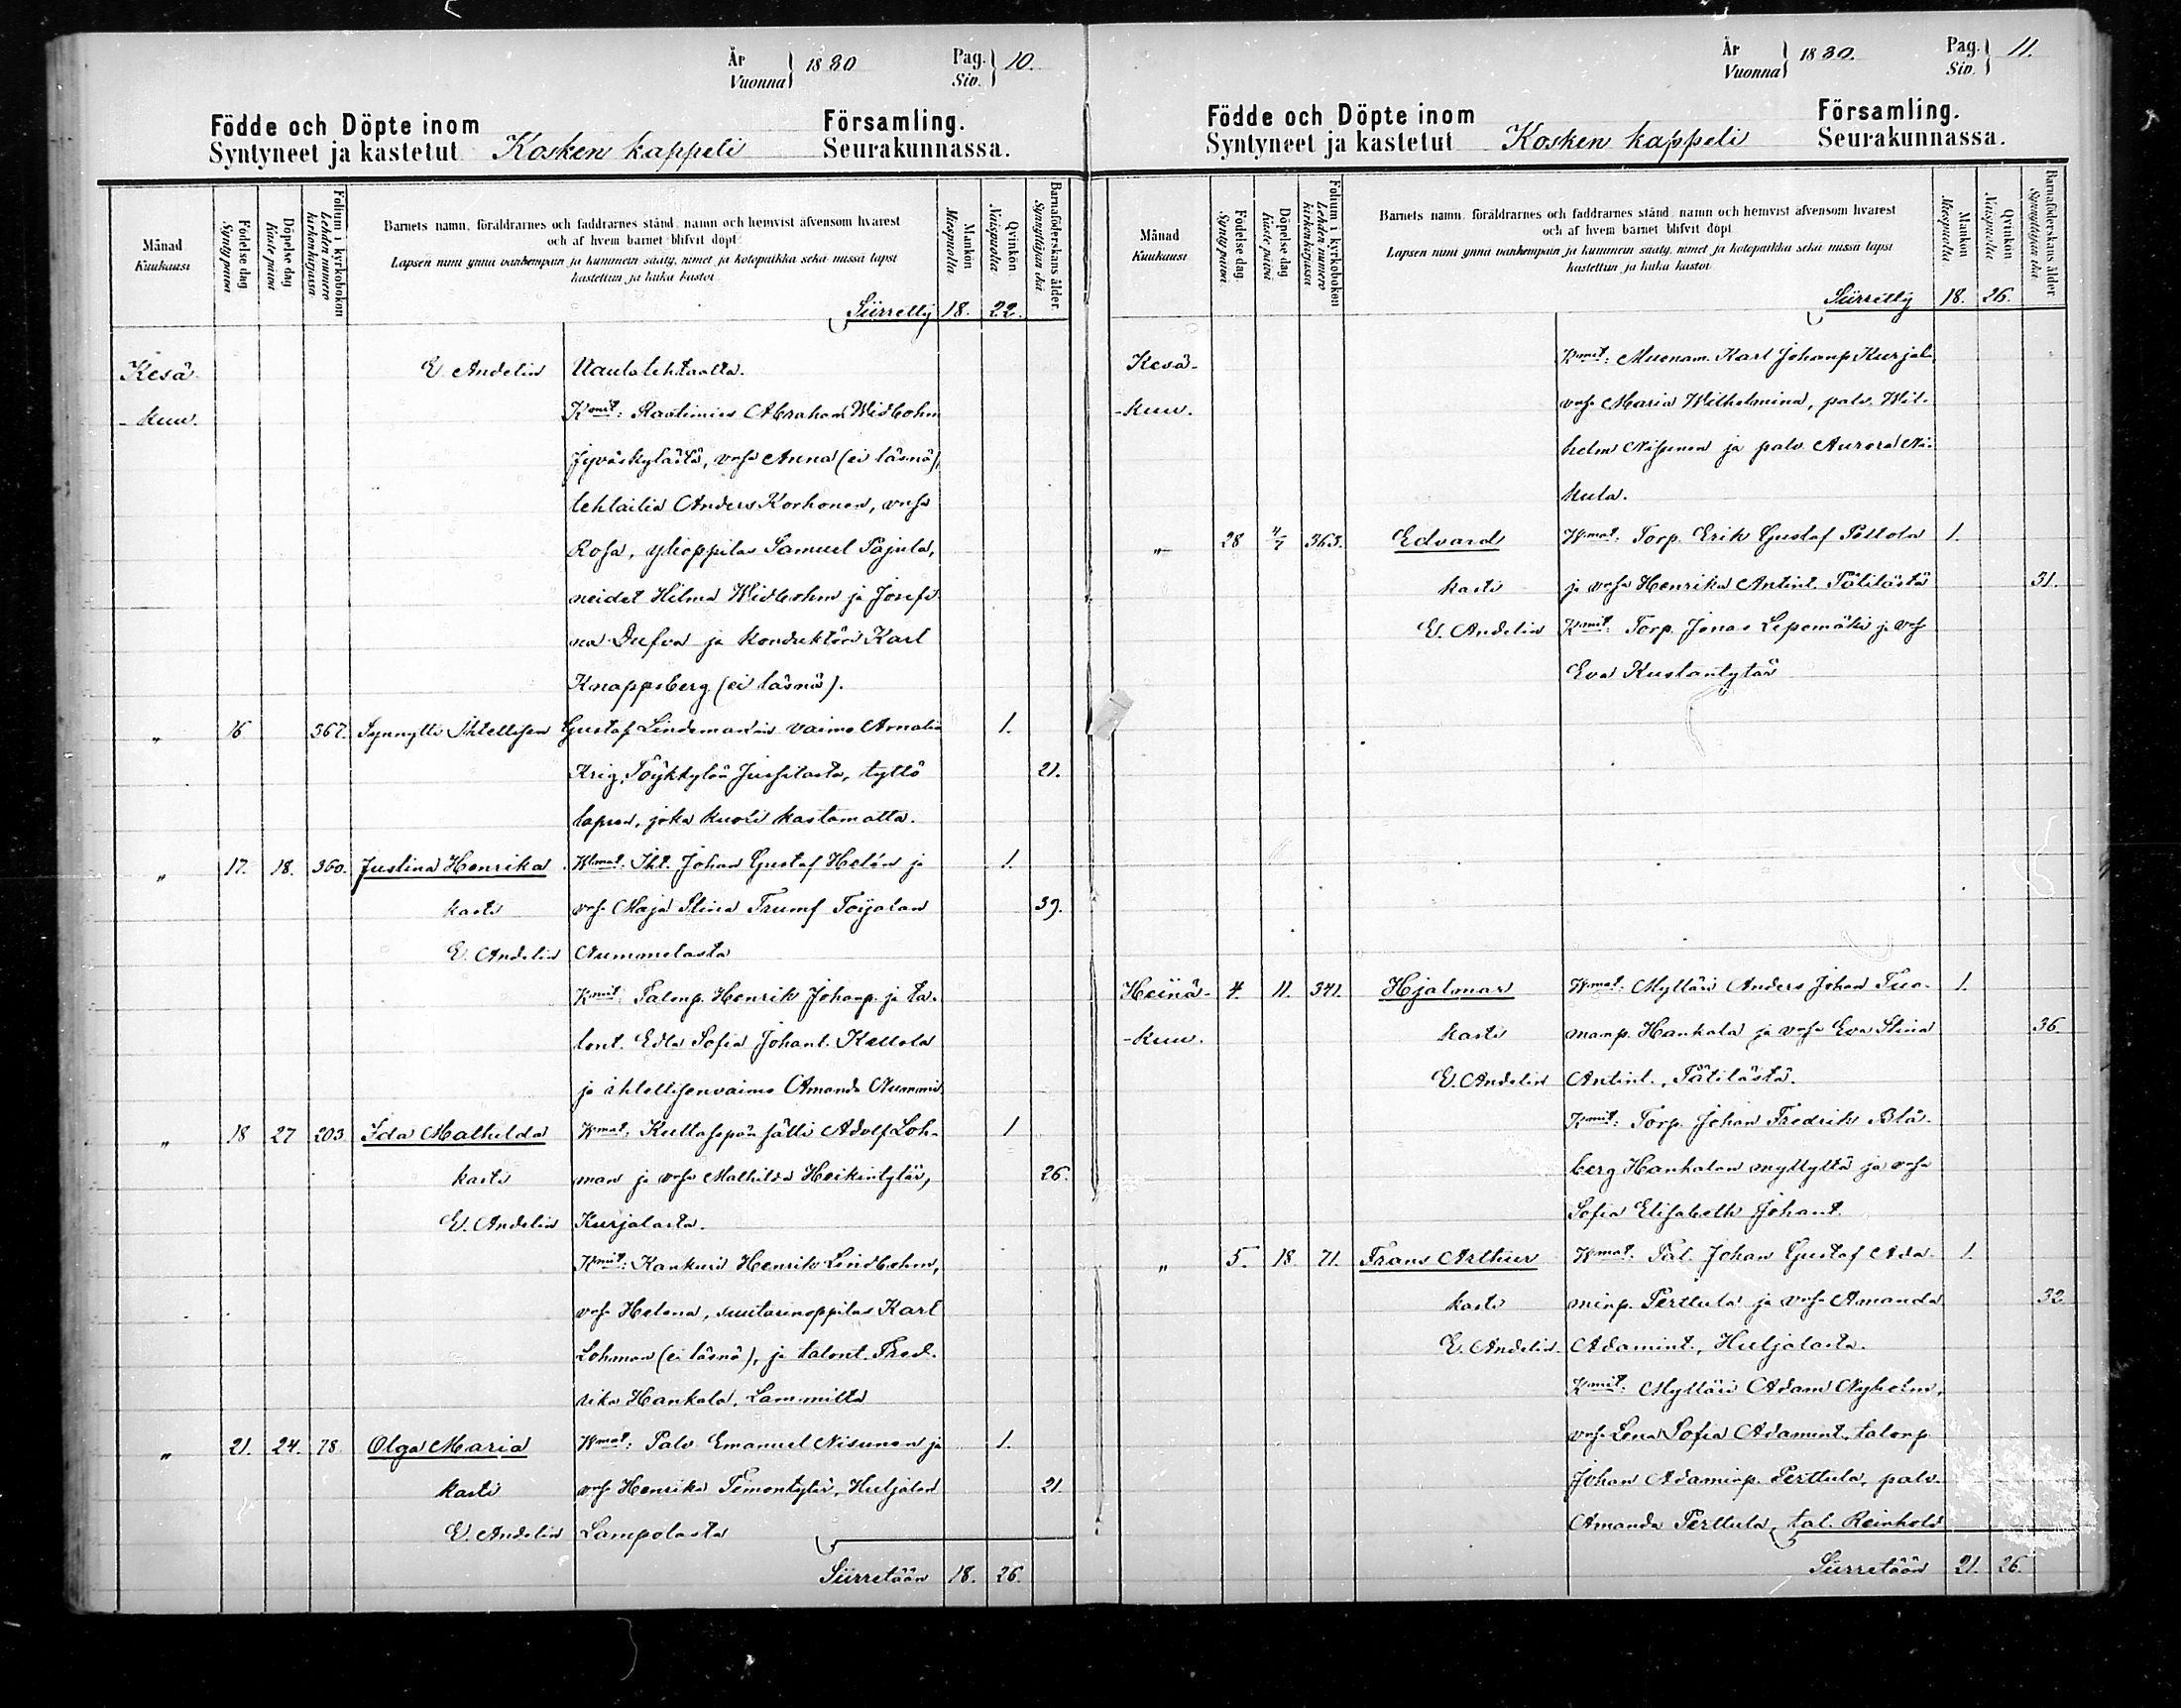 År Vuonna 1880 Pag. Siv. 10.
Födde och Döpte inom Församling.
Syntyneet ja kastetut Kosken kappeli Seurakunnassa.
Månad Kuukausi
Födelse dag Syntypäivä
Döpelse dag Kastepäivä
Folium i kyrkoboken Lehden numero kirkonkirjassa
Barnets namn, föräldrarnes och faddrarnes stånd, namn och hemvist äfvensom hvarest
och af hvem barnet blifvit döpt
Lapsen nimi ynnä vanhempain ja kummein sääty, nimet ja kotopaikka sekä missä lapsi
kastettiin ja kuka kastoi
Mankön Miespuolia
Qvinkön Naispuolia
Barnaföderskans ålder. Synnyttäjän ikä
Siirretty 18. 22.
Kesä- E. Andelin Naulalehtaalta.
-kuu. Kmit: Raatimies Abraham Widbohm
Jyväskylästä, vrsa Anna (ei läsnä),
lehtailia Anders Korhonen, vrsa
Rosa, ylioppilas Samuel Pajula,
neidet Hilma Widbohm ja Josefi-
na Dufva ja konduktöri Karl
Knappsberg (ei läsnä).
„ 16 367. Synnytti Ihtellisen Gustaf Lindemanin vaimo Amalia 1.
Krig, Töykkylän Jussilasta, tyttö 21.
lapsen, joka kuoli kastamatta.
„ 17. 18. 360. Justina Henrika Wmat: Iht. Johan Gustaf Helén ja 1.
kasti vrsa Maja Stina Trumf Toijalan 39.
E. Andelin Nummelasta
Kmit: Talonp. Henrik Johanp. ja ta-
lont. Edla Sofia Johant. Kettola
ja ihtellisenvaimo Amanda Nummi
„ 18 27 203 Ida Mathilda Wmat: Kultasepän sälli Adolf Loh- 1
kasti man ja vrsa Mathilda Heikintytär, 26.
E. Andelin Kurjalasta.
Kmit: Kankuri Henrik Lindbohm,
vrsa Helena, suutarinoppilas Karl
Lohman (ei läsnä), ja talont. Fred-
rika Hankala, Lammilta
„ 21. 24. 78 Olga Maria Wmat: Palv Emanuel Nisunen ja 1.
kasti vrsa Henrika Simontytär, Huljalan 21.
E. Andelin Lampolasta
Siirretään 18. 26.
År Vuonna 1880. Pag. Siv. 11.
Födde och Döpte inom Församling.
Syntyneet ja kastetut Kosken kappeli Seurakunnassa.
Månad Kuukausi
Födelse dag Syntypäivä
Döpelse dag Kastepäivä
Folium i kyrkoboken Lehden numero kirkonkirjassa
Barnets namn, föräldrarnes och faddrarnes stånd, namn och hemvist äfvensom hvarest
och af hvem barnet blifvit döpt
Lapsen nimi ynnä vanhempain ja kummein sääty, nimet ja kotopaikka sekä missä lapsi
kastettiin ja kuka kastoi
Mankön Miespuolia
Qvinkön Naispuolia
Barnaföderskans ålder. Synnyttäjän ikä
Siirretty 18. 26.
Kesä- Kmit: Muonam. Karl Johanp Kurjal.
-kuu. vrsa Maria Wilhelmina, palv. Wil-
helm Nisunen ja palv Aurora Ni-
kula.
„ 28 4/7 363. Edvard Wmat: Torp. Erik Gustaf Pottola 1.
kasti ja vrsa Henrika Antint. Tätilästä 31.
E. Andelin Kmit: Torp. Jonas Lepomäki ja vrsa
Eva Kustantytär
Heinä- 4. 11. 341. Hjalmar Wmat: Mylläri Anders Johan Tuo- 1.
-kuu. kasti manp. Hankala ja vrsa Eva Stina 36.
E. Andelin Antint., Tätilästä.
Kmit: Torp. Johan Fredrik Blå-
berg Hankalan myllyltä ja vrsa
Sofia Elisabeth Johant.
„ 5. 18 71. Frans Arthur Wmat: Tal. Johan Gustaf Ada- 1.
kasti minp. Perttula ja vrsa Amanda 32
E. Andelin Adamint., Huljalasta.
Kmit: Mylläri Adam Nyholm,
vrsa Lena Sofia Adamint, talonp
Johan Adaminp. Perttula, palv.
Amanda Perttula, tal. Reinhold
Siirretään 21. 26.